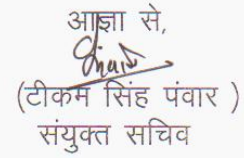 आज्ञा से,
(टीकम सिंह पंवार )
संयुक्त सचिव